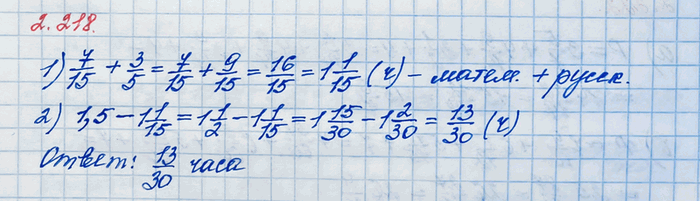 2.218.
1) 7/15 + 3/5 = 7/15 + 9/15 = 16/15 = 1 1/15 (ч) – матем. + русск.
2) 1,5 – 1 1/15 = 1 1/2 – 1 1/15 = 1 15/30 – 1 2/30 = 13/30 (ч)
Ответ: 13/30 часа